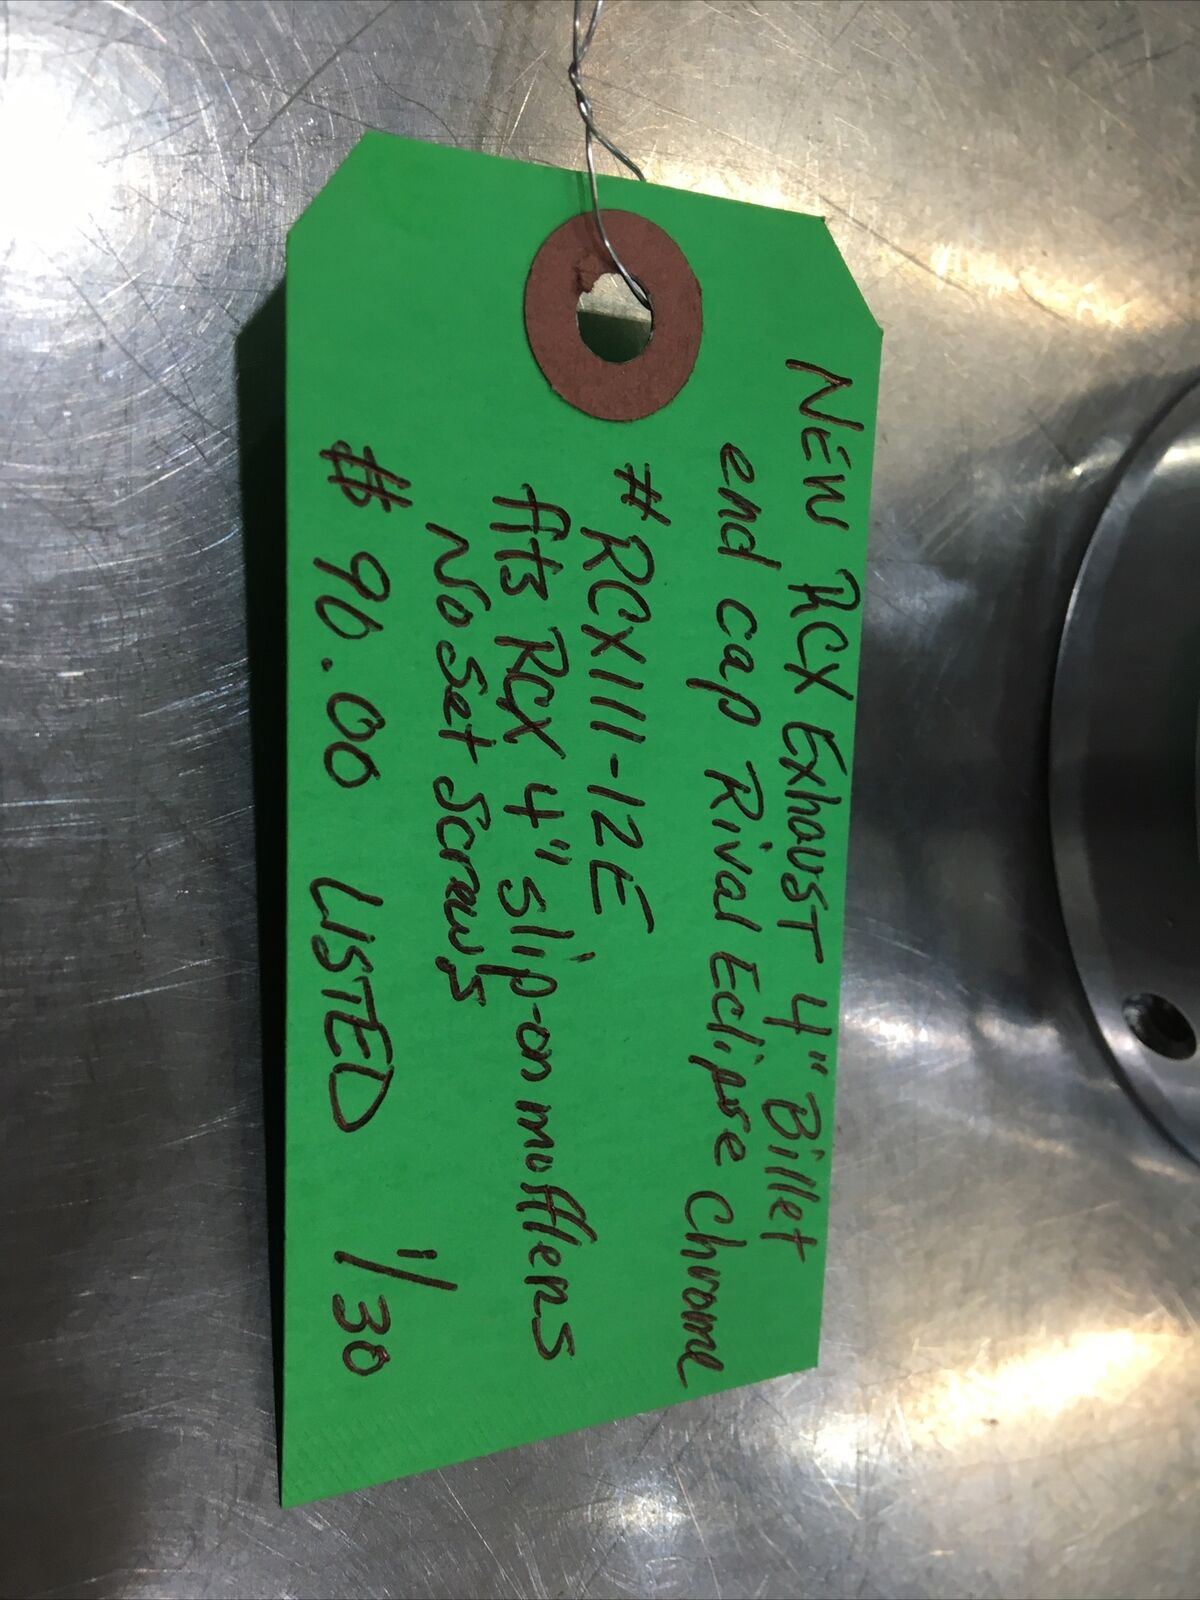 NEW RCX Exhaust 4" Billet
end cap Rival Eclipse Chrome
#RCX111-12E
fits RCX 4" slip-on mufflers
No Set Screws
$ 90.00 LISTED 1/30